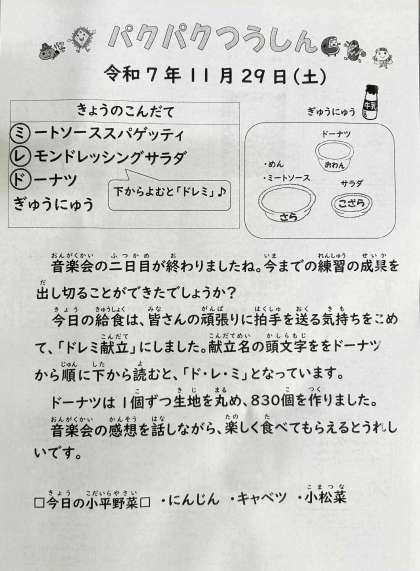 パクパクつうしん
令和７年１１月２９日（土）
きょうのこんだて
ミートソーススパゲッティ
レモンドレッシングサラダ
ドーナツ
ぎゅうにゅう
下からよむと「ドレミ」♪
ぎゅうにゅう
牛乳
ドーナツ
おわん
・めん
・ミートソース
さら
サラダ
こざら
音楽会の二日目が終わりましたね。今までの練習の成果を
出し切ることができたでしょうか？
今日の給食は、皆さんの頑張りに拍手を送る気持ちをこめ
て、「ドレミ献立」にしました。献立名の頭文字ををドーナツ
から順に下から読むと、「ド・レ・ミ」となっています。
ドーナツは１個ずつ生地を丸め、830個を作りました。
音楽会の感想を話しながら、楽しく食べてもらえるとうれし
いです。
□今日の小平野菜□ ・にんじん ・キャベツ ・小松菜